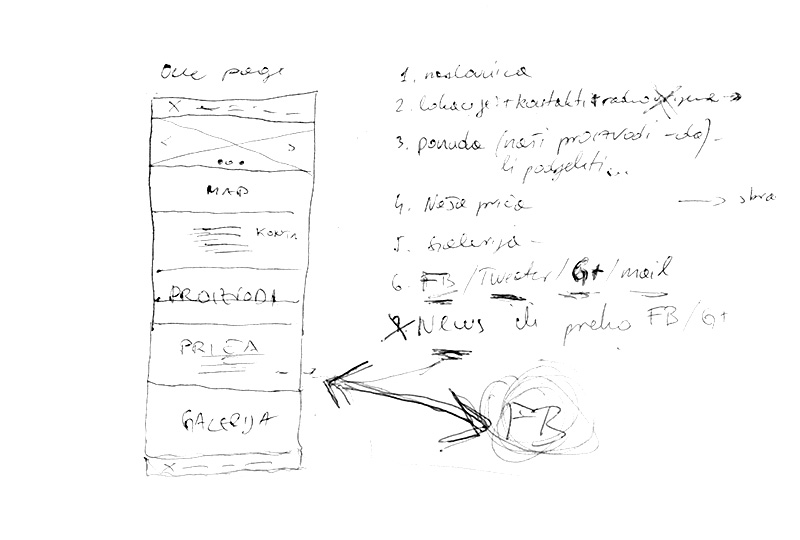 One page
X
MAP
KONTA
PROIZVODI
PRIČA
GALERIJA
X
1. naslovnica
2. lokacije + kontakti + radno vrijeme
3. ponuda (naši proizvodi - da)
li podijeliti...
4. Naša priča
5. Galerija -
6. FB / Tweeter / G+ / mail
News ili preko FB / G+
FB